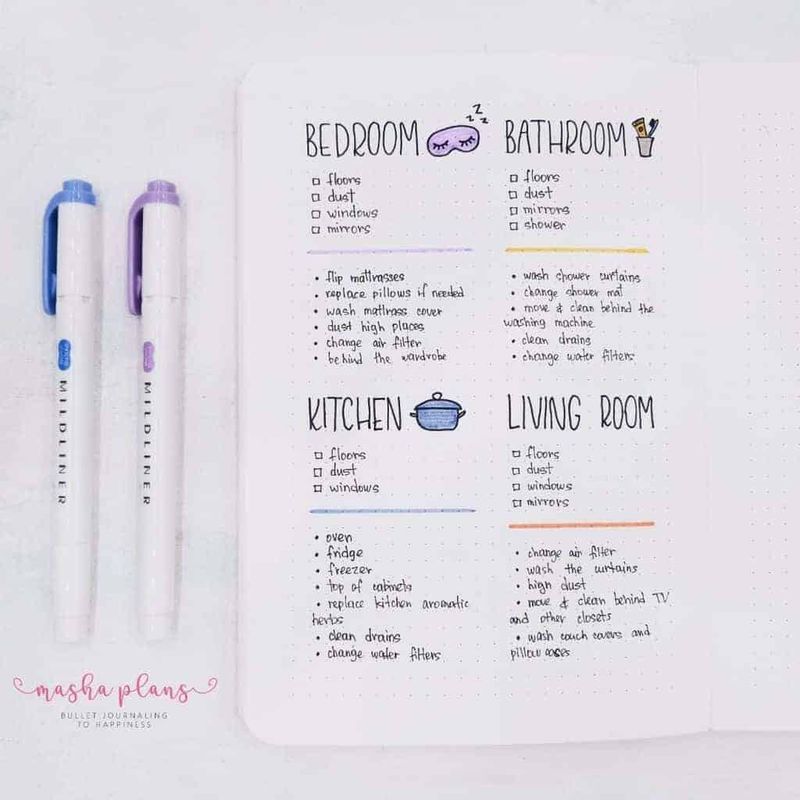 BEDROOM
z z z
floors
dust
windows
mirrors
• flip mattrasses
• replace pillows if needed
• wash mattrass cover
• dust high places
• change air filter
• behind the wardrobe
BATHROOM
floors
dust
mirrors
shower
• wash shower curtains
• change shower mat
• move & clean behind the
washing machine
• clean drains
• change water filters
KITCHEN
floors
dust
windows
• oven
• fridge
• freezer
• top of cabinets
• replace kitchen aromatic
herbs
• clean drains
• change water filters
LIVING ROOM
floors
dust
windows
mirrors
• change air filter
• wash the curtains
• high dust
• move & clean behind TV
and other closets
• wash couch covers and
pillow cases
MILDLINER
MILDLINER
masha plans
BULLET JOURNALING
TO HAPPINESS